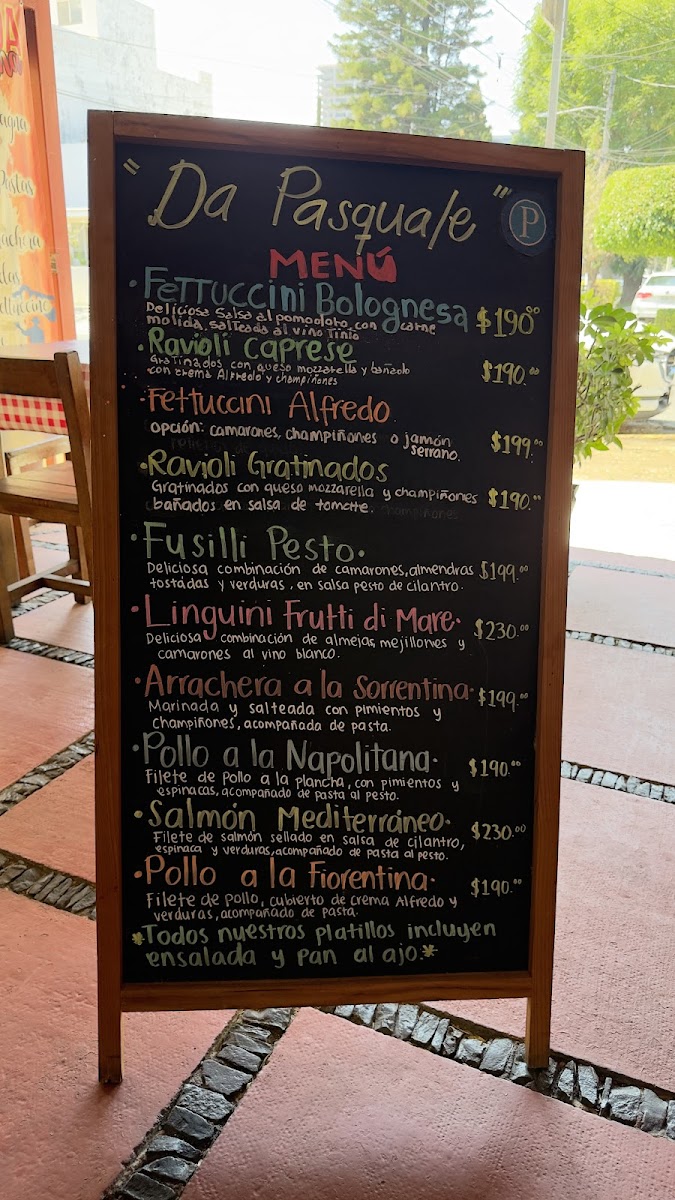 " Da Pasquale "
P
MENÚ
• Fettuccini Bolognesa $190.00
Deliciosa Salsa al pomodoro, con carne
molida, salteada al vino Tinto
• Ravioli Caprese
Gratinados con queso mozzarella y bañado $190.00
con crema Alfredo y champiñones
• Fettuccini Alfredo
opción: camarones, champiñones o jamón $199.00
serrano.
• Ravioli Gratinados
Gratinados con queso mozzarella y champiñones $190.00
bañados en salsa de tomate.
• Fusilli Pesto.
Deliciosa combinación de camarones, almendras $199.00
tostadas y verduras, en salsa pesto de cilantro.
• Linguini Frutti di Mare. $230.00
Deliciosa combinación de almejas, mejillones y
camarones al vino blanco.
• Arrachera a la Sorrentina. $199.00
Marinada y salteada con pimientos y
champiñones, acompañada de pasta.
• Pollo a la Napolitana. $190.00
Filete de pollo a la plancha, con pimientos y
espinacas, acompañado de pasta al pesto.
• Salmón Mediterráneo. $230.00
Filete de salmón sellado en salsa de cilantro,
espinaca y verduras, acompañado de pasta al pesto.
• Pollo a la Fiorentina. $190.00
Filete de pollo, cubierto de crema Alfredo y
verduras, acompañado de pasta.
*Todos nuestros platillos incluyen
ensalada y pan al ajo.*
Pastas